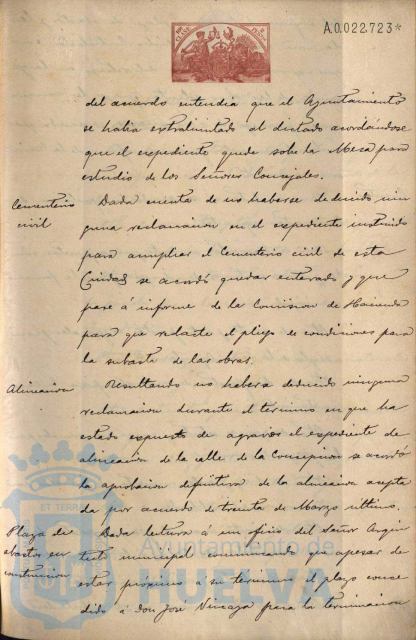 A.0.022.723*
del acuerdo entendia que el Ayuntamiento
se habia extralimitado al dictado acordandose
que el expediente quede sobre la Mesa para
estudio de los Señores Concejales.
Cementerio civil
Dada cuenta de no haberse deducido nin
guna reclamacion en el expediente instruido
para ampliar el Cementerio civil de esta
Ciudad se acordó quedar enterado y que
pase á informe de la Comision de Hacienda
para que redacte el pliego de condiciones para
la subasta de las obras.
Alineacion
Resultando no haberse deducido ninguna
reclamacion durante el termino en que ha
estado expuesto de agravios el expediente de
alineacion de la calle de la Concepcion se acordó
la aprobacion definitiva de la alineacion acepta
da por acuerdo de treinta de Marzo ultimo.
Plaza de abastos en construccion
Dada lectura á un oficio del Señor Arqui
tecto municipal comunicando que apesar de
estar próximo á su termino el plazo conce
dido á don José para la terminacion
Ayuntamiento de
HUELVA